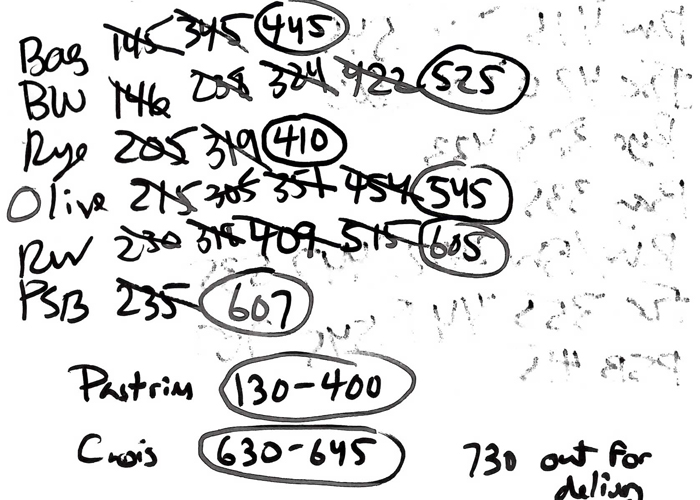 Bag 145 345 445
BW 146 238 324 422 525
Rye 205 319 410
Olive 215 305 351 454 545
RW 230 318 409 515 605
PSB 235 607
Pastrim 130-400
Crois 630-645
730 out for
delivry